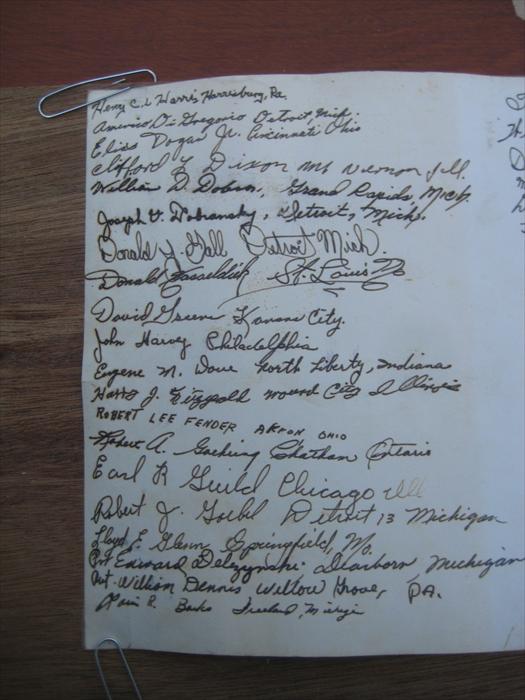 Henry C. L. Harris Harrisburg, Pa.
Americo Di Gregorio Detroit, Mich.
Elias Dogar Jr. Cincinnati Ohio
Clifford L Dixon Mt Vernon Ill.
William D. Dobson, Grand Rapids, Mich.
Joseph V. Dobransky, Detroit, Mich.
Donald J. Gall Detroit Mich.
Donald St. Louis Mo
David Greene Kansas City.
John Harvey Philadelphia
Eugene M. Dove North Liberty, Indiana
Harry J. Mound City Illinois
ROBERT LEE FENDER AKRON OHIO
Robert A. Chatham Ontario
Earl R Guild Chicago Ill
Robert J. Goebel Detroit 13 Michigan
Lloyd E. Glenn Springfield, Mo.
Pvt Edward Dearborn Michigan
Pvt. William Dennis Willow Grove, PA.
R. Banks Freeland, Michigan